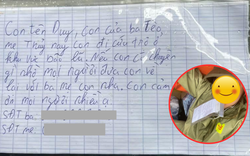 Con tên Duy, con của ba Tèo,
mẹ Thuý nay con đi cứu trợ ở
khu vực Đắk Lắk. Nếu con có chuyện
gì nhờ mọi người đưa con về
lại với ba mẹ con nha. Con cảm
ơn mọi người nhiều ạ.
SĐT ba:
SĐT mẹ: